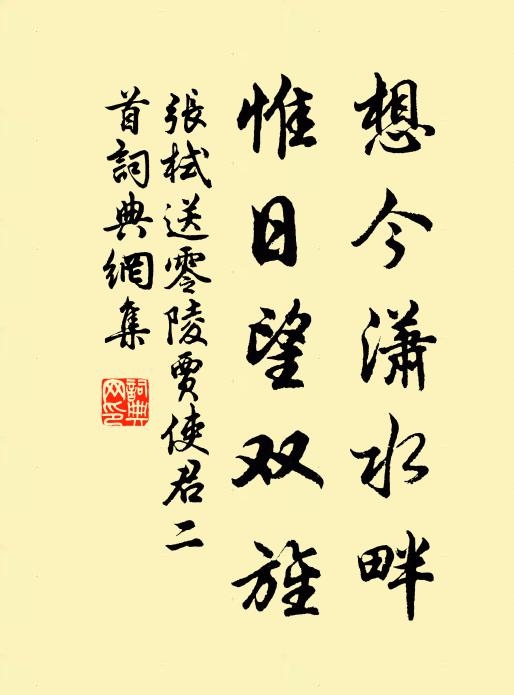 想今潇水畔
惟日望双旌
張栻送零陵賈使君二
首詞典網集
詞典
网印